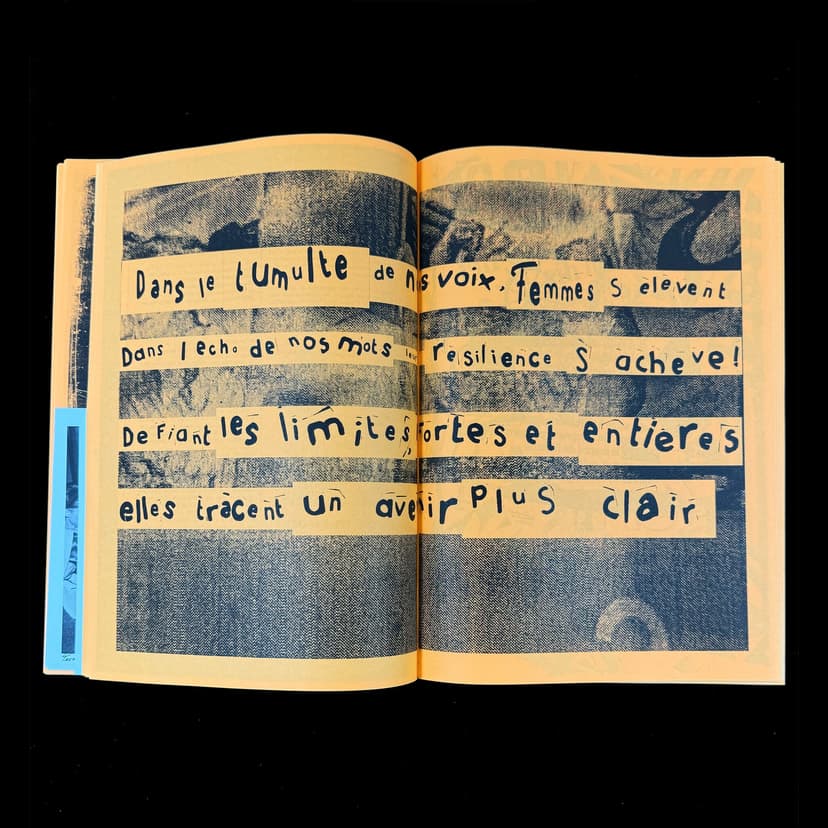 Dans le tumulte de nos voix, Femmes S elevent
Dans l echo de nos mots leur resilience S acheve!
Defiant les limites, Fortes et entieres
elles tracent un avenir Plus clair.